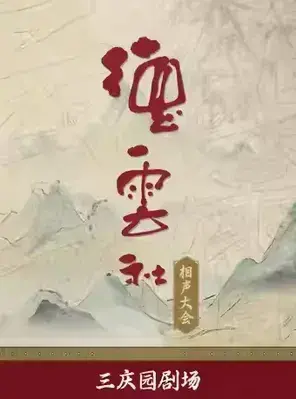 德雲社
相声大会
三庆园剧场